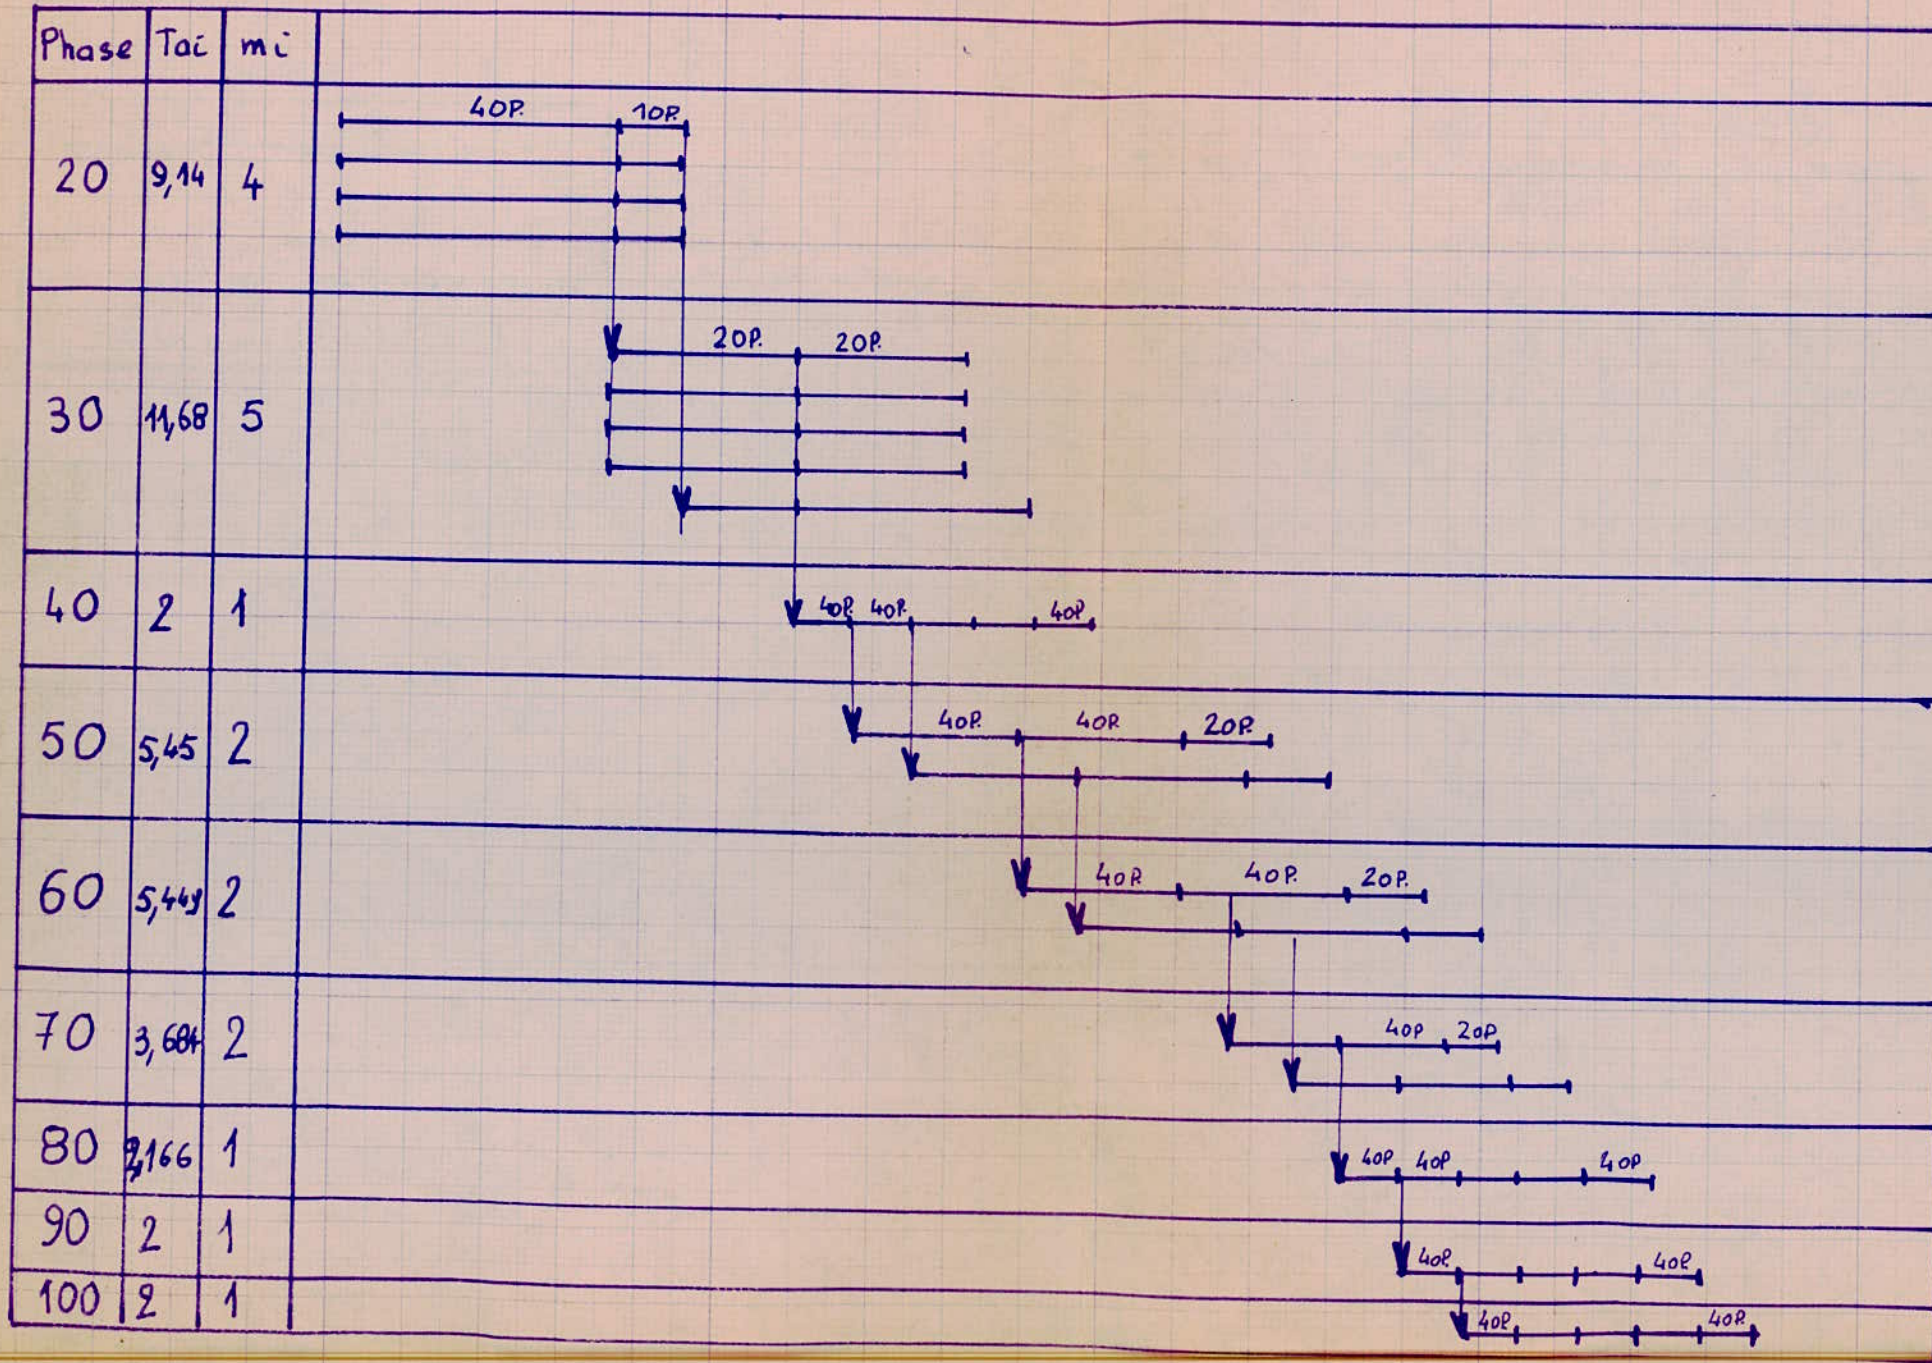 Phase Tai mi
40P. 10P.
20 9,14 4
20P. 20P.
30 11,68 5
40 2 1 40P. 40P. 40P
40P. 40P 20P.
50 5,45 2
40P 40P. 20P.
60 5,449 2
70 3,684 2 40P 20P
80 2,166 1 40P 40P 40P
90 2 1
40P. 40P.
100 2 1
40P 40P.